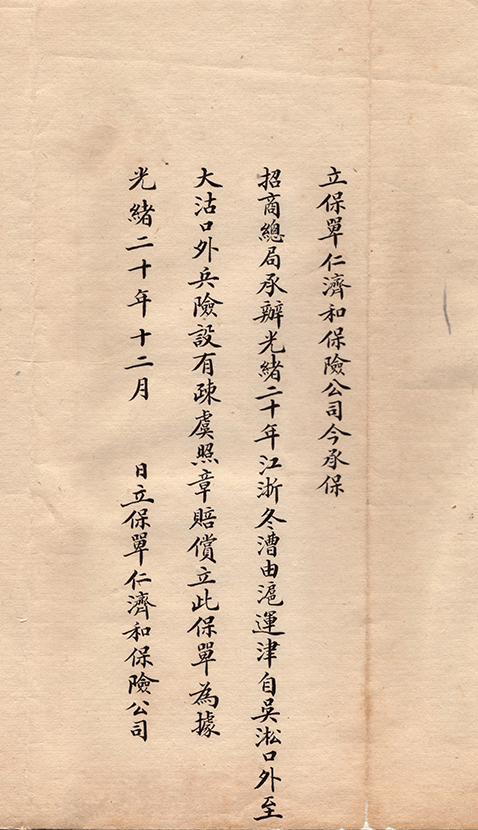 立保單仁濟和保險公司今承保
招商總局承辦光緒二十年江浙冬漕由滬運津自吳淞口外至
大沽口外兵險設有疎虞照章賠償立此保單為據
光緒二十年十二月 日立保單仁濟和保險公司